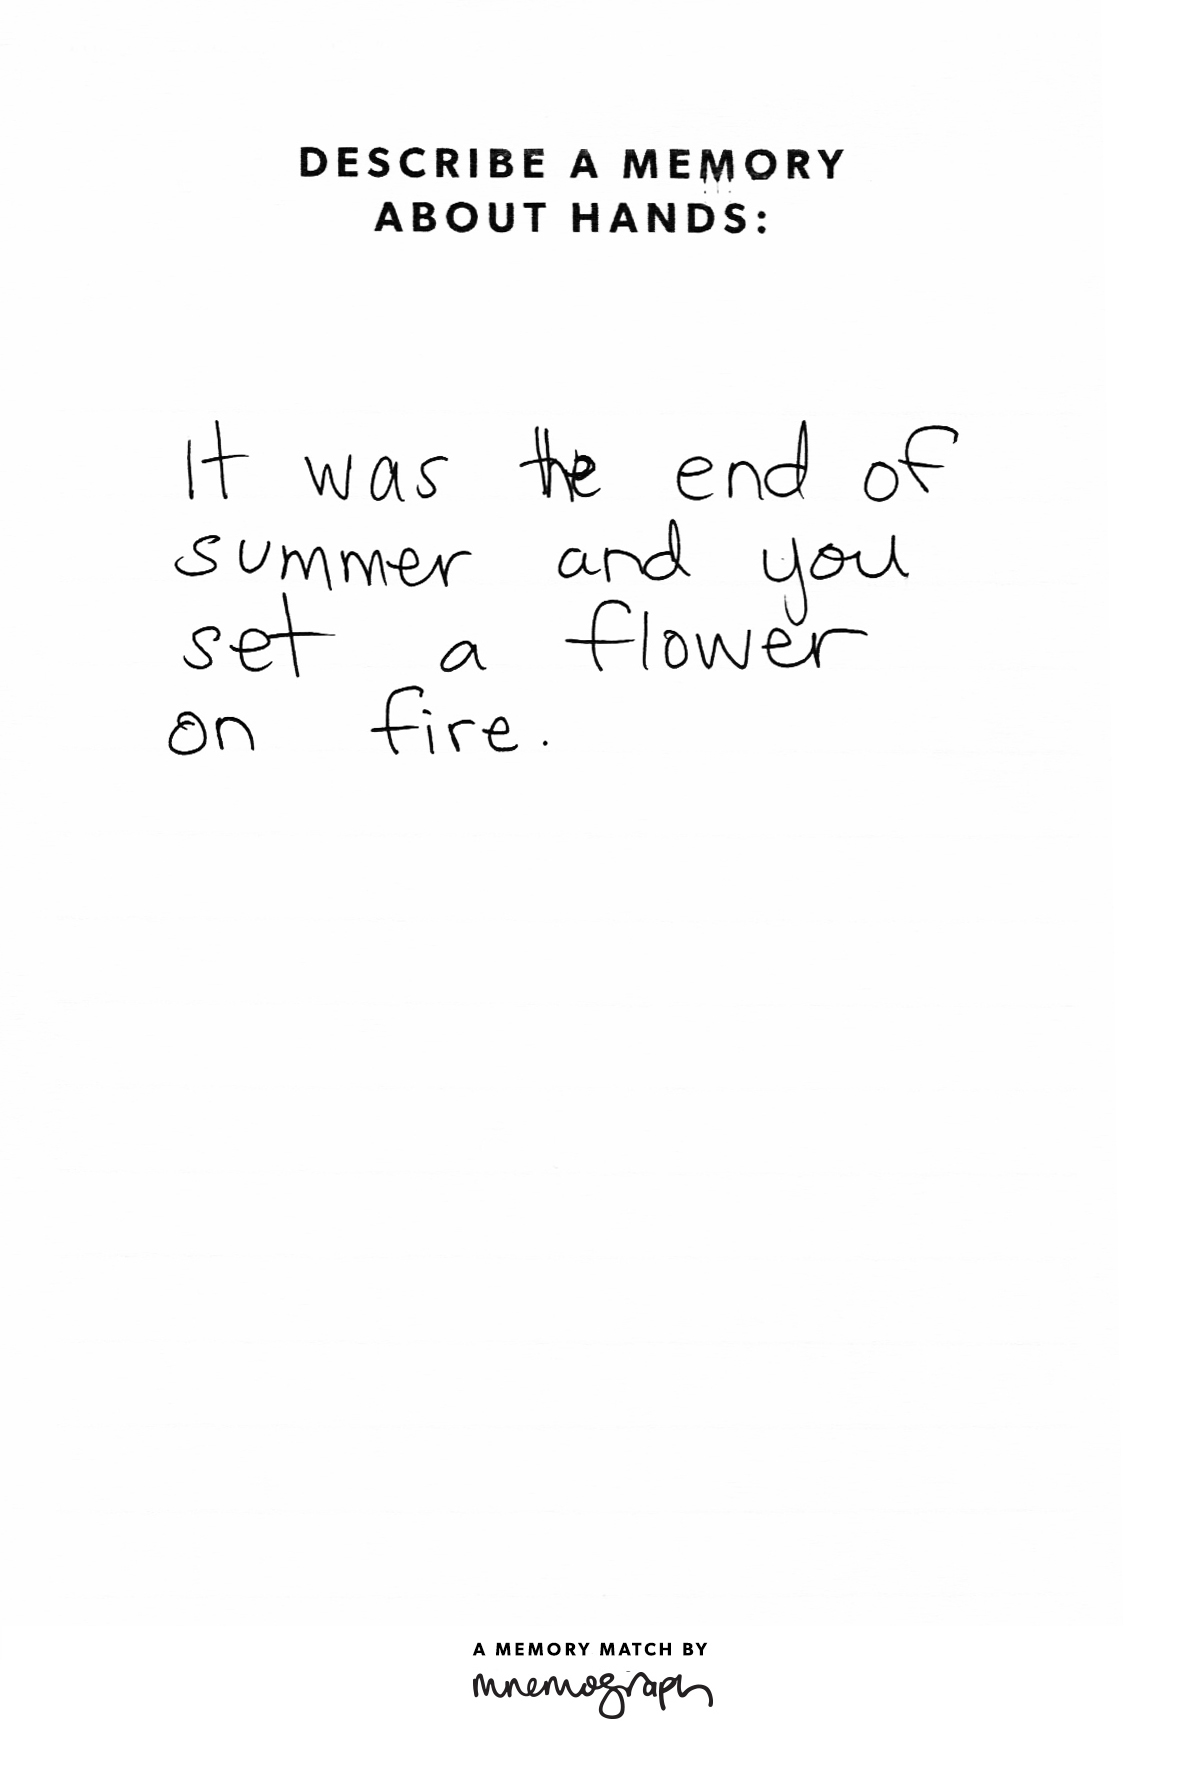 DESCRIBE A MEMORY
ABOUT HANDS:
It was the end of
summer and you
set a flower
on fire.
A MEMORY MATCH BY
mnemograph